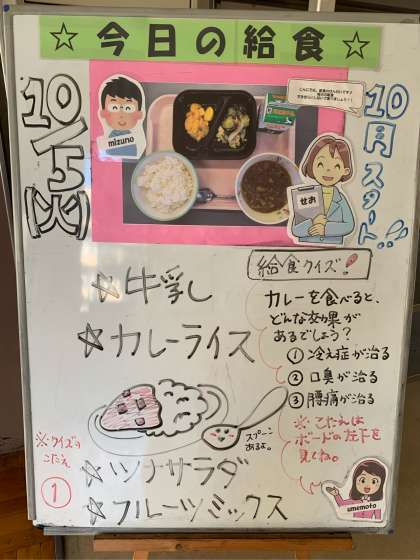 ☆今日の給食☆
10/5(火)
10月スタート!!
mizuno
せお
☆牛乳
☆カレーライス
スプーン
あるよ。
☆ツナサラダ
☆フルーツミックス
給食クイズ!
カレーを食べると、
どんな効果が
あるでしょう?
①冷え症が治る
②口臭が治る
③腰痛が治る
※こたえは
ボードの左下を
見てね。
umemoto
※クイズの
こたえ
①